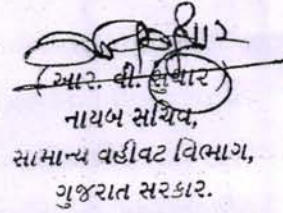 (આર. વી. સુથાર)
નાયબ સચિવ,
સામાન્ય વહીવટ વિભાગ,
ગુજરાત સરકાર.